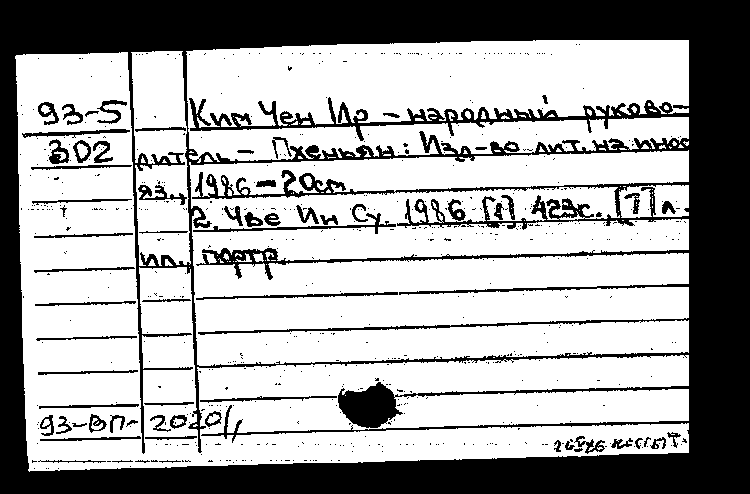 93-5 Ким Чен Ир - народный руково-
302 дитель - Пхеньян: Изд-во лит. на инос
яз., 1986 - 20см.
2. Чве Ин Су. 1986. [1], 423с., [7] л.
ил., портр.
93-ВП- 2020/,